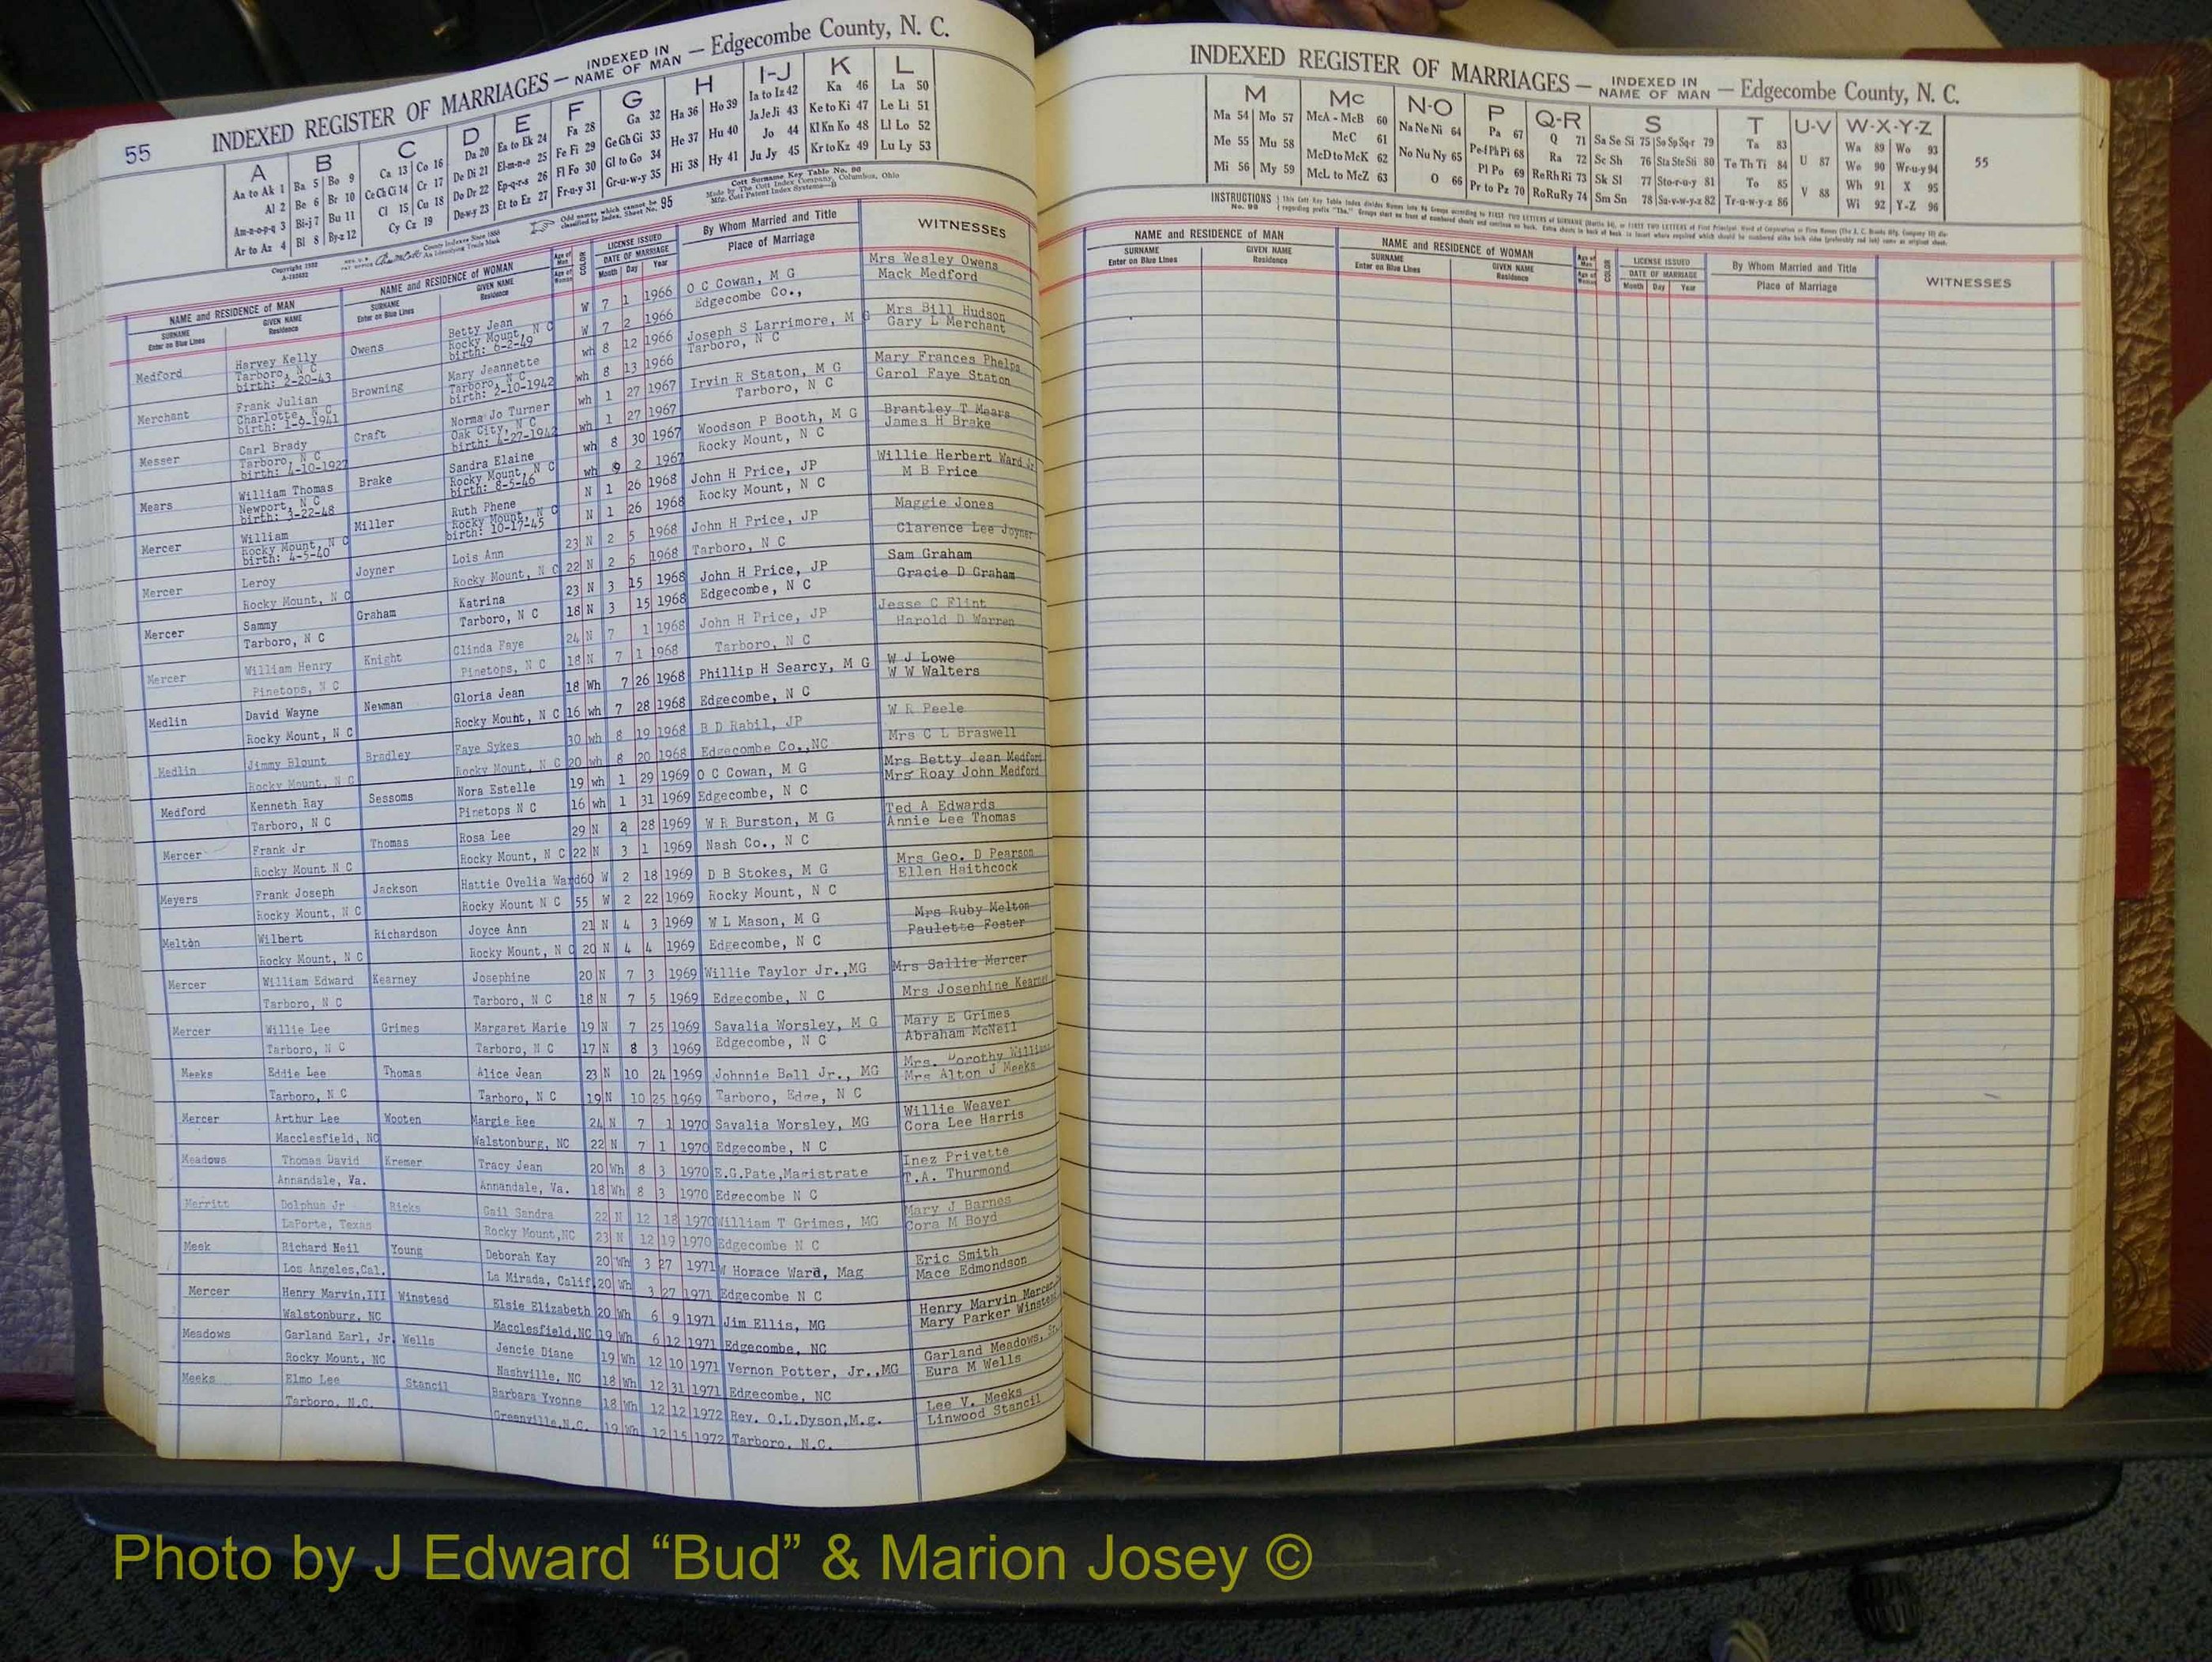 55
INDEXED REGISTER OF MARRIAGES — INDEXED IN NAME OF MAN — Edgecombe County, N. C.
A B C D E F G H I-J K L
Aa to Ak 1 Ba 5 Bo 9 Ca 13 Co 16 Da 20 Ea to Ek 24 Fa 28 Ga 32 Ha 36 Ho 39 Ia to Iz 42 Ka 46 La 50
Al 2 Be 6 Br 10 Ce Ch Ci 14 Cr 17 De Di 21 El-m-n-o 25 Fe Fi 29 Ge Gh Gi 33 He 37 Hu 40 Ja Je Ji 43 Ke to Ki 47 Le Li 51
Am-n-o-p-q 3 Bi-j 7 Bu 11 Cl 15 Cu 18 Do Dr 22 Ep-q-r-s 26 Fl Fo 30 Gl to Go 34 Hi 38 Hy 41 Jo 44 Kl Kn Ko 48 Ll Lo 52
Ar to Az 4 Bl 8 By-z 12 Cy Cz 19 Du-w-y 23 Et to Ez 27 Fr-u-y 31 Gr-u-w-y 35 Ju Jy 45 Kr to Kz 49 Lu Ly 53
NAME and RESIDENCE of MAN NAME and RESIDENCE of WOMAN COLOR LICENSE ISSUED By Whom Married and Title WITNESSES
SURNAME GIVEN NAME SURNAME GIVEN NAME DATE OF MARRIAGE Place of Marriage
Enter on Blue Lines Residence Enter on Blue Lines Residence Month Day Year
Medford Harvey Kelly Owens Betty Jean W 7 1 1966 O C Cowan, M G Mrs Wesley Owens
Tarboro, N C Rocky Mount, N C W 7 2 1966 Edgecombe Co., Mack Medford
birth: 2-20-43 birth: 6-2-49
Merchant Frank Julian Browning Mary Jeannette wh 8 12 1966 Joseph S Larrimore, M G Mrs Bill Hudson
Charlotte, N C Tarboro, N C wh 8 13 1966 Tarboro, N C Gary L Merchant
birth: 1-9-1941 birth: 2-10-1942
Messer Carl Brady Craft Norma Jo Turner wh 1 27 1967 Irvin R Staton, M G Mary Frances Phelps
Tarboro, N C Oak City, N C wh 1 27 1967 Tarboro, N C Carol Faye Staton
birth: 4-10-1927 birth: 4-27-1942
Mears William Thomas Brake Sandra Elaine wh 8 30 1967 Woodson P Booth, M G Brantley T Mears
Newport, N C Rocky Mount, N C wh 9 2 1967 Rocky Mount, N C James H Brake
birth: 3-22-48 birth: 8-5-46
Mercer William Miller Ruth Phene N 1 26 1968 John H Price, JP Willie Herbert Ward Jr
Rocky Mount, N C Rocky Mount, N C N 1 26 1968 Rocky Mount, N C M B Price
birth: 4-5-40 birth: 10-17-45
Mercer Leroy Joyner Lois Ann 23 N 2 5 1968 John H Price, JP Maggie Jones
Rocky Mount, N C Rocky Mount, N C 22 N 2 5 1968 Tarboro, N C Clarence Lee Joyner
Mercer Sammy Graham Katrina 23 N 3 15 1968 John H Price, JP Sam Graham
Tarboro, N C Tarboro, N C 18 N 3 15 1968 Edgecombe, N C Gracie D Graham
Mercer William Henry Knight Clinda Faye 24 N 7 1 1968 John H Price, JP Jesse C Flint
Pinetops, N C Pinetops, N C 18 N 7 1 1968 Tarboro, N C Harold D Warren
Medlin David Wayne Newman Gloria Jean 18 Wh 7 26 1968 Phillip H Searcy, M G W J Lowe
Rocky Mount, N C Rocky Mount, N C 16 wh 7 28 1968 Edgecombe, N C W W Walters
Medlin Jimmy Blount Bradley Faye Sykes 30 wh 8 19 1968 B D Rabil, JP W R Peele
Rocky Mount, N C Rocky Mount, N C 20 wh 8 20 1968 Edgecombe Co.,NC Mrs C L Braswell
Medford Kenneth Ray Sessoms Nora Estelle 19 wh 1 29 1969 O C Cowan, M G Mrs Betty Jean Medford
Tarboro, N C Pinetops N C 16 wh 1 31 1969 Edgecombe, N C Mrs Roay John Medford
Mercer Frank Jr Thomas Rosa Lee 29 N 2 28 1969 W R Burston, M G Ted A Edwards
Rocky Mount N C Rocky Mount, N C 22 N 3 1 1969 Nash Co., N C Annie Lee Thomas
Meyers Frank Joseph Jackson Hattie Ovelia Ward 60 W 2 18 1969 D B Stokes, M G Mrs Geo. D Pearson
Rocky Mount, N C Rocky Mount N C 55 W 2 22 1969 Rocky Mount, N C Ellen Haithcock
Melton Wilbert Richardson Joyce Ann 21 N 4 3 1969 W L Mason, M G Mrs Ruby Melton
Rocky Mount, N C Rocky Mount, N C 20 N 4 4 1969 Edgecombe, N C Paulette Foster
Mercer William Edward Kearney Josephine 20 N 7 3 1969 Willie Taylor Jr.,MG Mrs Sallie Mercer
Tarboro, N C Tarboro, N C 18 N 7 5 1969 Edgecombe, N C Mrs Josephine Kearney
Mercer Willie Lee Grimes Margaret Marie 19 N 7 25 1969 Savalia Worsley, M G Mary E Grimes
Tarboro, N C Tarboro, N C 17 N 8 3 1969 Edgecombe, N C Abraham McNeil
Meeks Eddie Lee Thomas Alice Jean 23 N 10 24 1969 Johnnie Bell Jr., MG Mrs. Dorothy
Tarboro, N C Tarboro, N C 19 N 10 25 1969 Tarboro, Edge, N C Mrs Alton J Meeks
Mercer Arthur Lee Wooten Margie Ree 24 N 7 1 1970 Savalia Worsley, MG Willie Weaver
Macclesfield, NC Walstonburg, NC 22 N 7 1 1970 Edgecombe, N C Cora Lee Harris
Meadows Thomas David Kremer Tracy Jean 20 Wh 8 3 1970 E.G.Pate,Magistrate Inez Privette
Annandale, Va. Annandale, Va. 18 Wh 8 3 1970 Edgecombe N C T.A. Thurmond
Merritt Dolphus Jr Ricks Gail Sandra 22 N 12 18 1970 William T Grimes, MG Mary J Barnes
LaPorte, Texas Rocky Mount,NC 23 N 12 19 1970 Edgecombe N C Cora M Boyd
Meek Richard Neil Young Deborah Kay 20 Wh 3 27 1971 W Horace Ward, Mag Eric Smith
Los Angeles,Cal. La Mirada, Calif 20 Wh 3 27 1971 Edgecombe N C Mace Edmondson
Mercer Henry Marvin,III Winstead Elsie Elizabeth 20 Wh 6 9 1971 Jim Ellis, MG Henry Marvin Mercer,
Walstonburg, NC Macclesfield,NC 19 Wh 6 12 1971 Edgecombe, NC Mary Parker Winstead
Meadows Garland Earl, Jr Wells Jencie Diane 19 Wh 12 10 1971 Vernon Potter, Jr.,MG Garland Meadows, Sr.
Rocky Mount, NC Nashville, NC 18 Wh 12 31 1971 Edgecombe, NC Eura M Wells
Meeks Elmo Lee Stancil Barbara Yvonne 18 Wh 12 12 1972 Rev. O.L.Dyson,M.g. Lee V. Meeks
Tarboro, N.C. Greenville,N.C. 19 Wh 12 15 1972 Tarboro, N.C. Linwood Stancil
INDEXED REGISTER OF MARRIAGES — INDEXED IN NAME OF MAN — Edgecombe County, N. C.
M Mc N-O P Q-R S T U-V W-X-Y-Z
Ma 54 Mo 57 McA - McB 60 Na Ne Ni 64 Pa 67 Q 71 Sa Se Si 75 So Sp Sq-r 79 Ta 83 U 87 Wa 89 Wo 93
Me 55 Mu 58 McC 61 No Nu Ny 65 Pe-f Ph Pi 68 Ra 72 Sc Sh 76 Sta Ste Sti 80 Te Th Ti 84 V 88 We 90 Wr-u-y 94
Mi 56 My 59 McD to McK 62 O 66 Pl Po 69 Re Rh Ri 73 Sk Sl 77 Sto-r-u-y 81 To 85 Wh 91 X 95
McL to McZ 63 Pr to Pz 70 Ro Ru Ry 74 Sm Sn 78 Su-v-w-y-z 82 Tr-u-w-y-z 86 Wi 92 Y-Z 96
55
INSTRUCTIONS
NAME and RESIDENCE OF MAN NAME and RESIDENCE OF WOMAN COLOR LICENSE ISSUED By Whom Married and Title WITNESSES
SURNAME GIVEN NAME SURNAME GIVEN NAME DATE OF MARRIAGE Place of Marriage
Enter on Blue Lines Residence Enter on Blue Lines Residence Month Day Year
Photo by J Edward “Bud” & Marion Josey ©